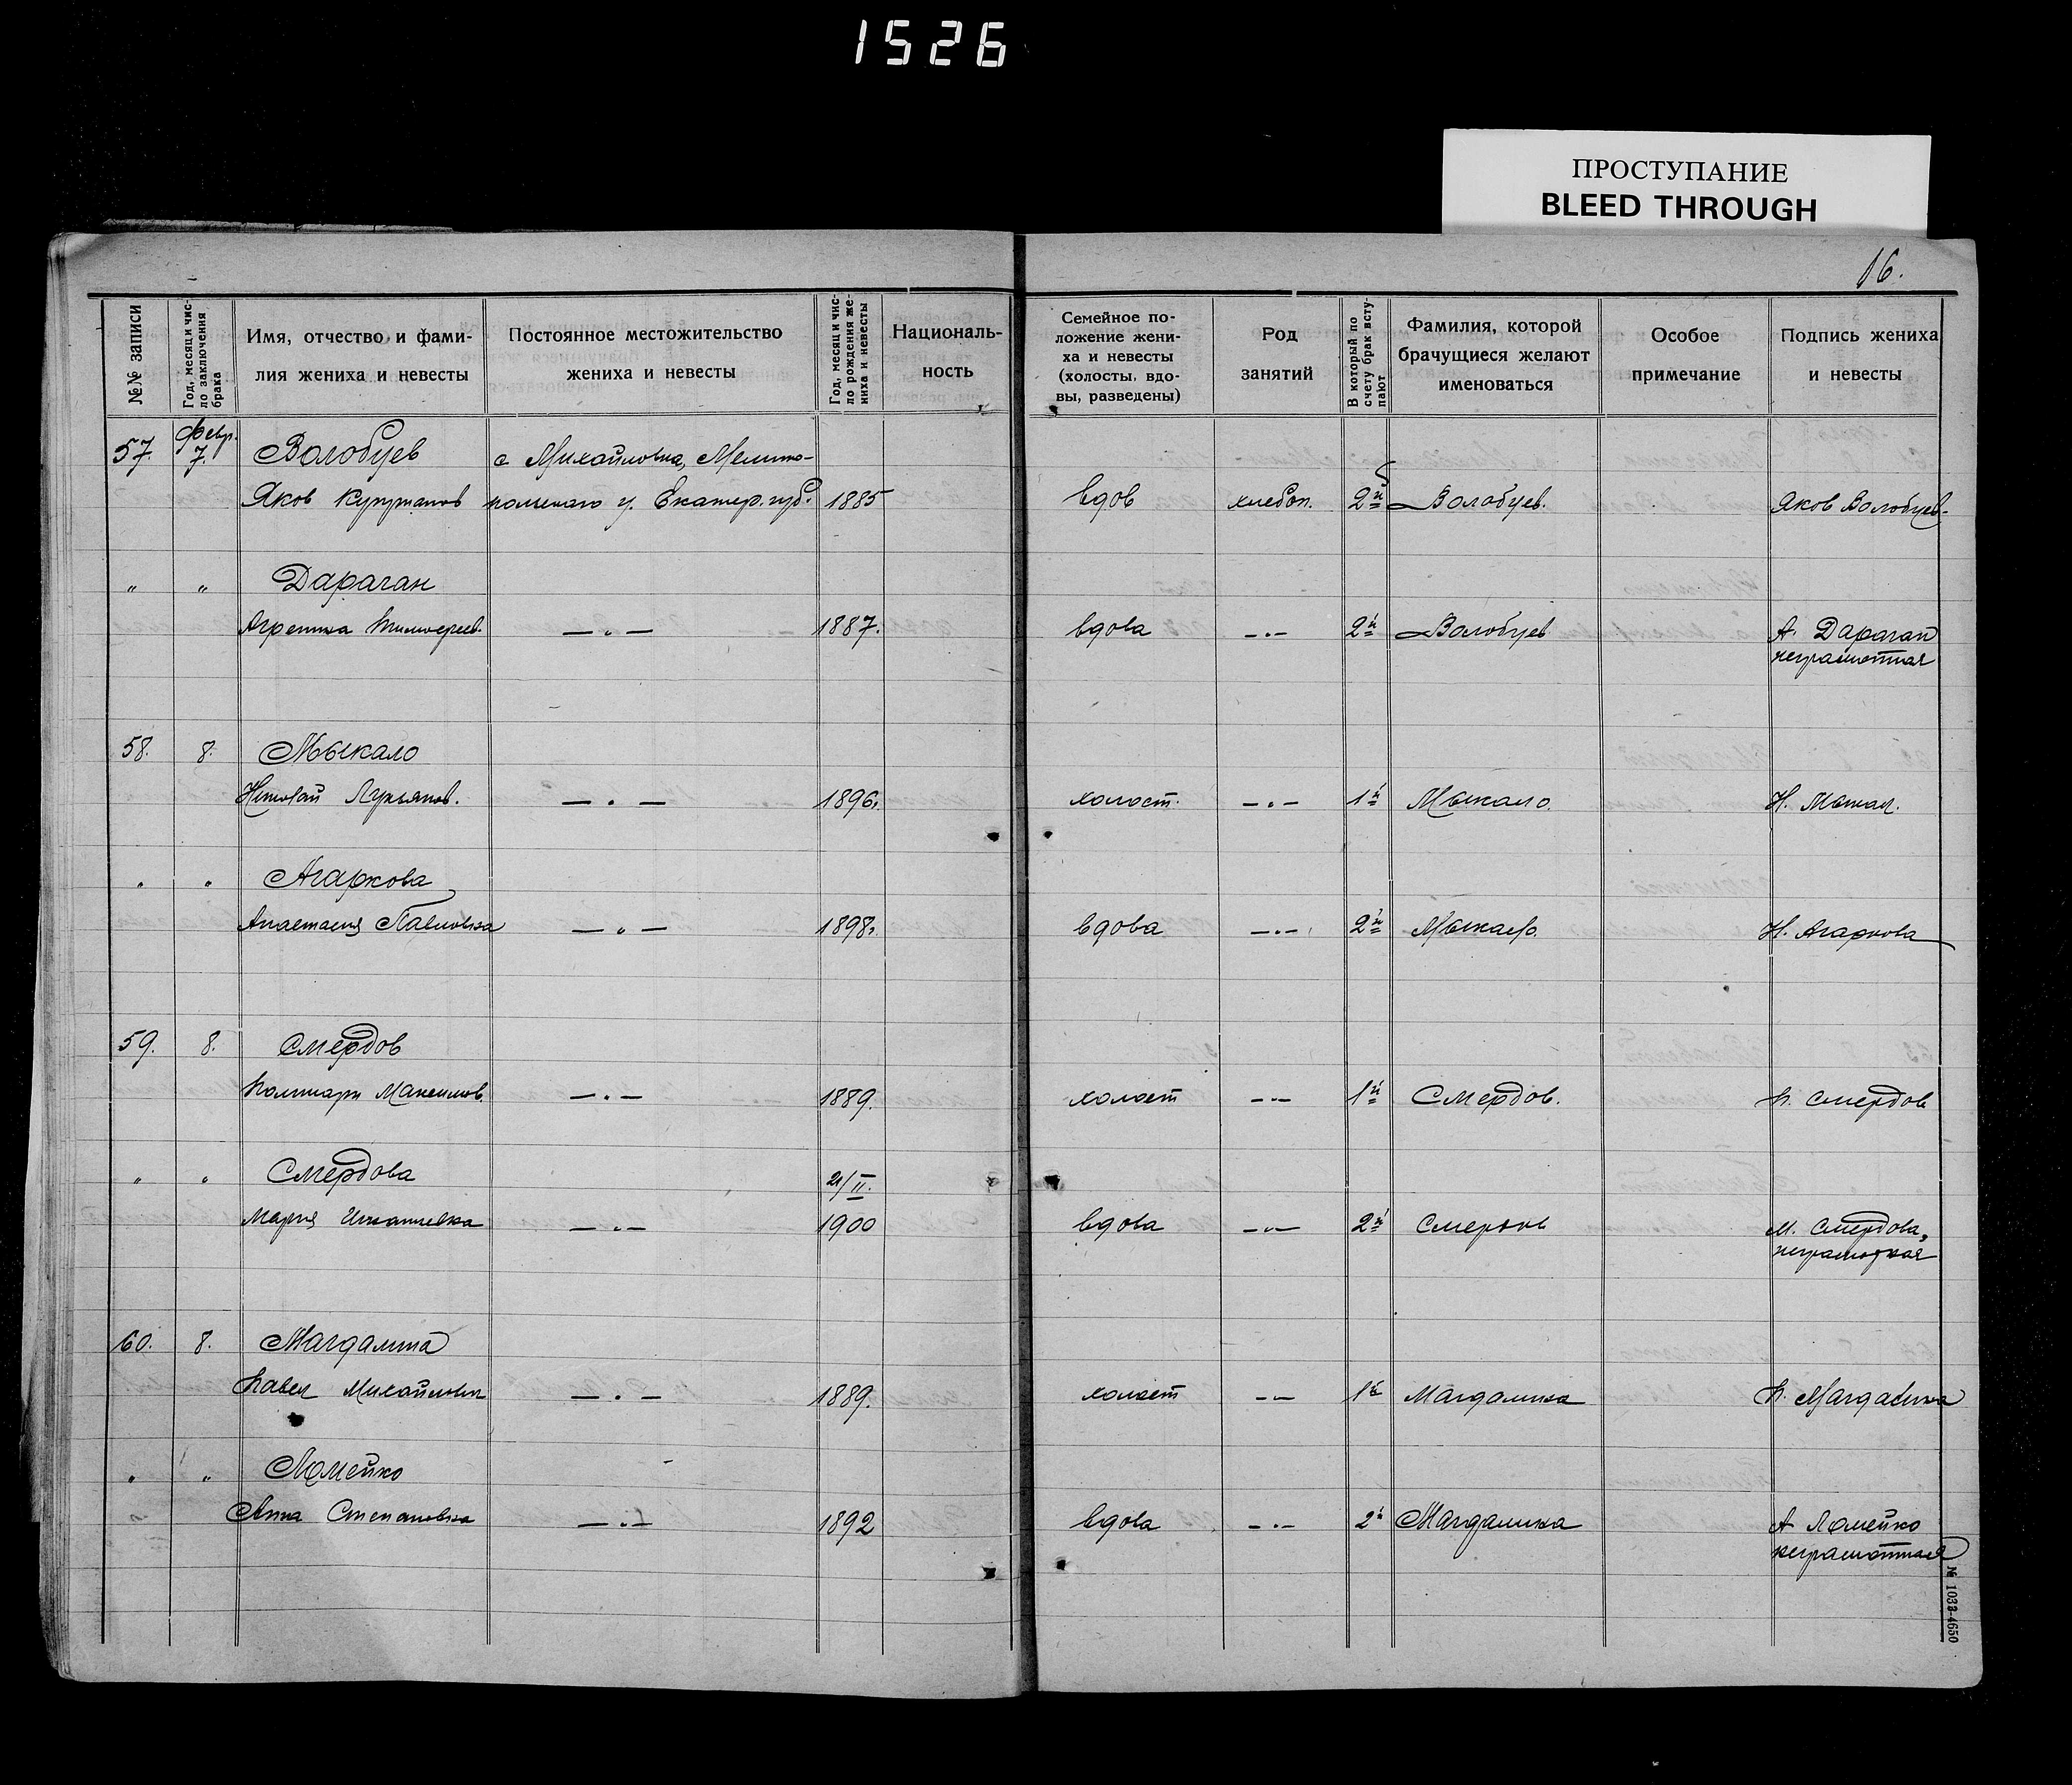 1526
ПРОСТУПАНИЕ
BLEED THROUGH
16.
№№ записи
Год, месяц и чис-
ло заключения
брака
Имя, отчество и фами-
лия жениха и невесты
Постоянное местожительство
жениха и невесты
Год, месяц и чис-
ло рождения же-
ниха и невесты
Националь-
ность
Семейное по-
ложение жени-
ха и невесты
(холосты, вдо-
вы, разведены)
Род
занятий
В который по
счету брак всту-
пают
Фамилия, которой
брачущиеся желают
именоваться
Особое
примечание
Подпись жениха
и невесты
февр.
57. 7. Волобуев с Михайловка, Мелито-
Яков польского у. Екатер. губ. 1885 вдов хлебоп. 2й Волобуев. Яков Волобуев
" " Дараган
Тимофеев. — " — 1887. вдова — " — 2й Волобуев А. Дараган
неграмотная
58. 8. Мыкало
Николай Лукьянов. — " — 1896. холост. — " — 1й Мыкало. Н.
" " Агаркова
Анастасия Павловна — " — 1898. вдова — " — 2й Мыкало. Н. Агаркова
59. 8. Смердов
Максимов. — " — 1889. холост — " — 1й Смердов. П. Смердов
" " Смердова 21/II.
Мария Игнатьевна — " — 1900 вдова — " — 2й Смердов М. Смердова,
неграмотная
60. 8. Магдалина
Павел Михайлович — " — 1889. холост — " — 1й Магдалина П. Магдалина
" " Ломейко
Анна Степановна — " — 1892 вдова — " — 2й Магдалина А Ломейко
неграмотная